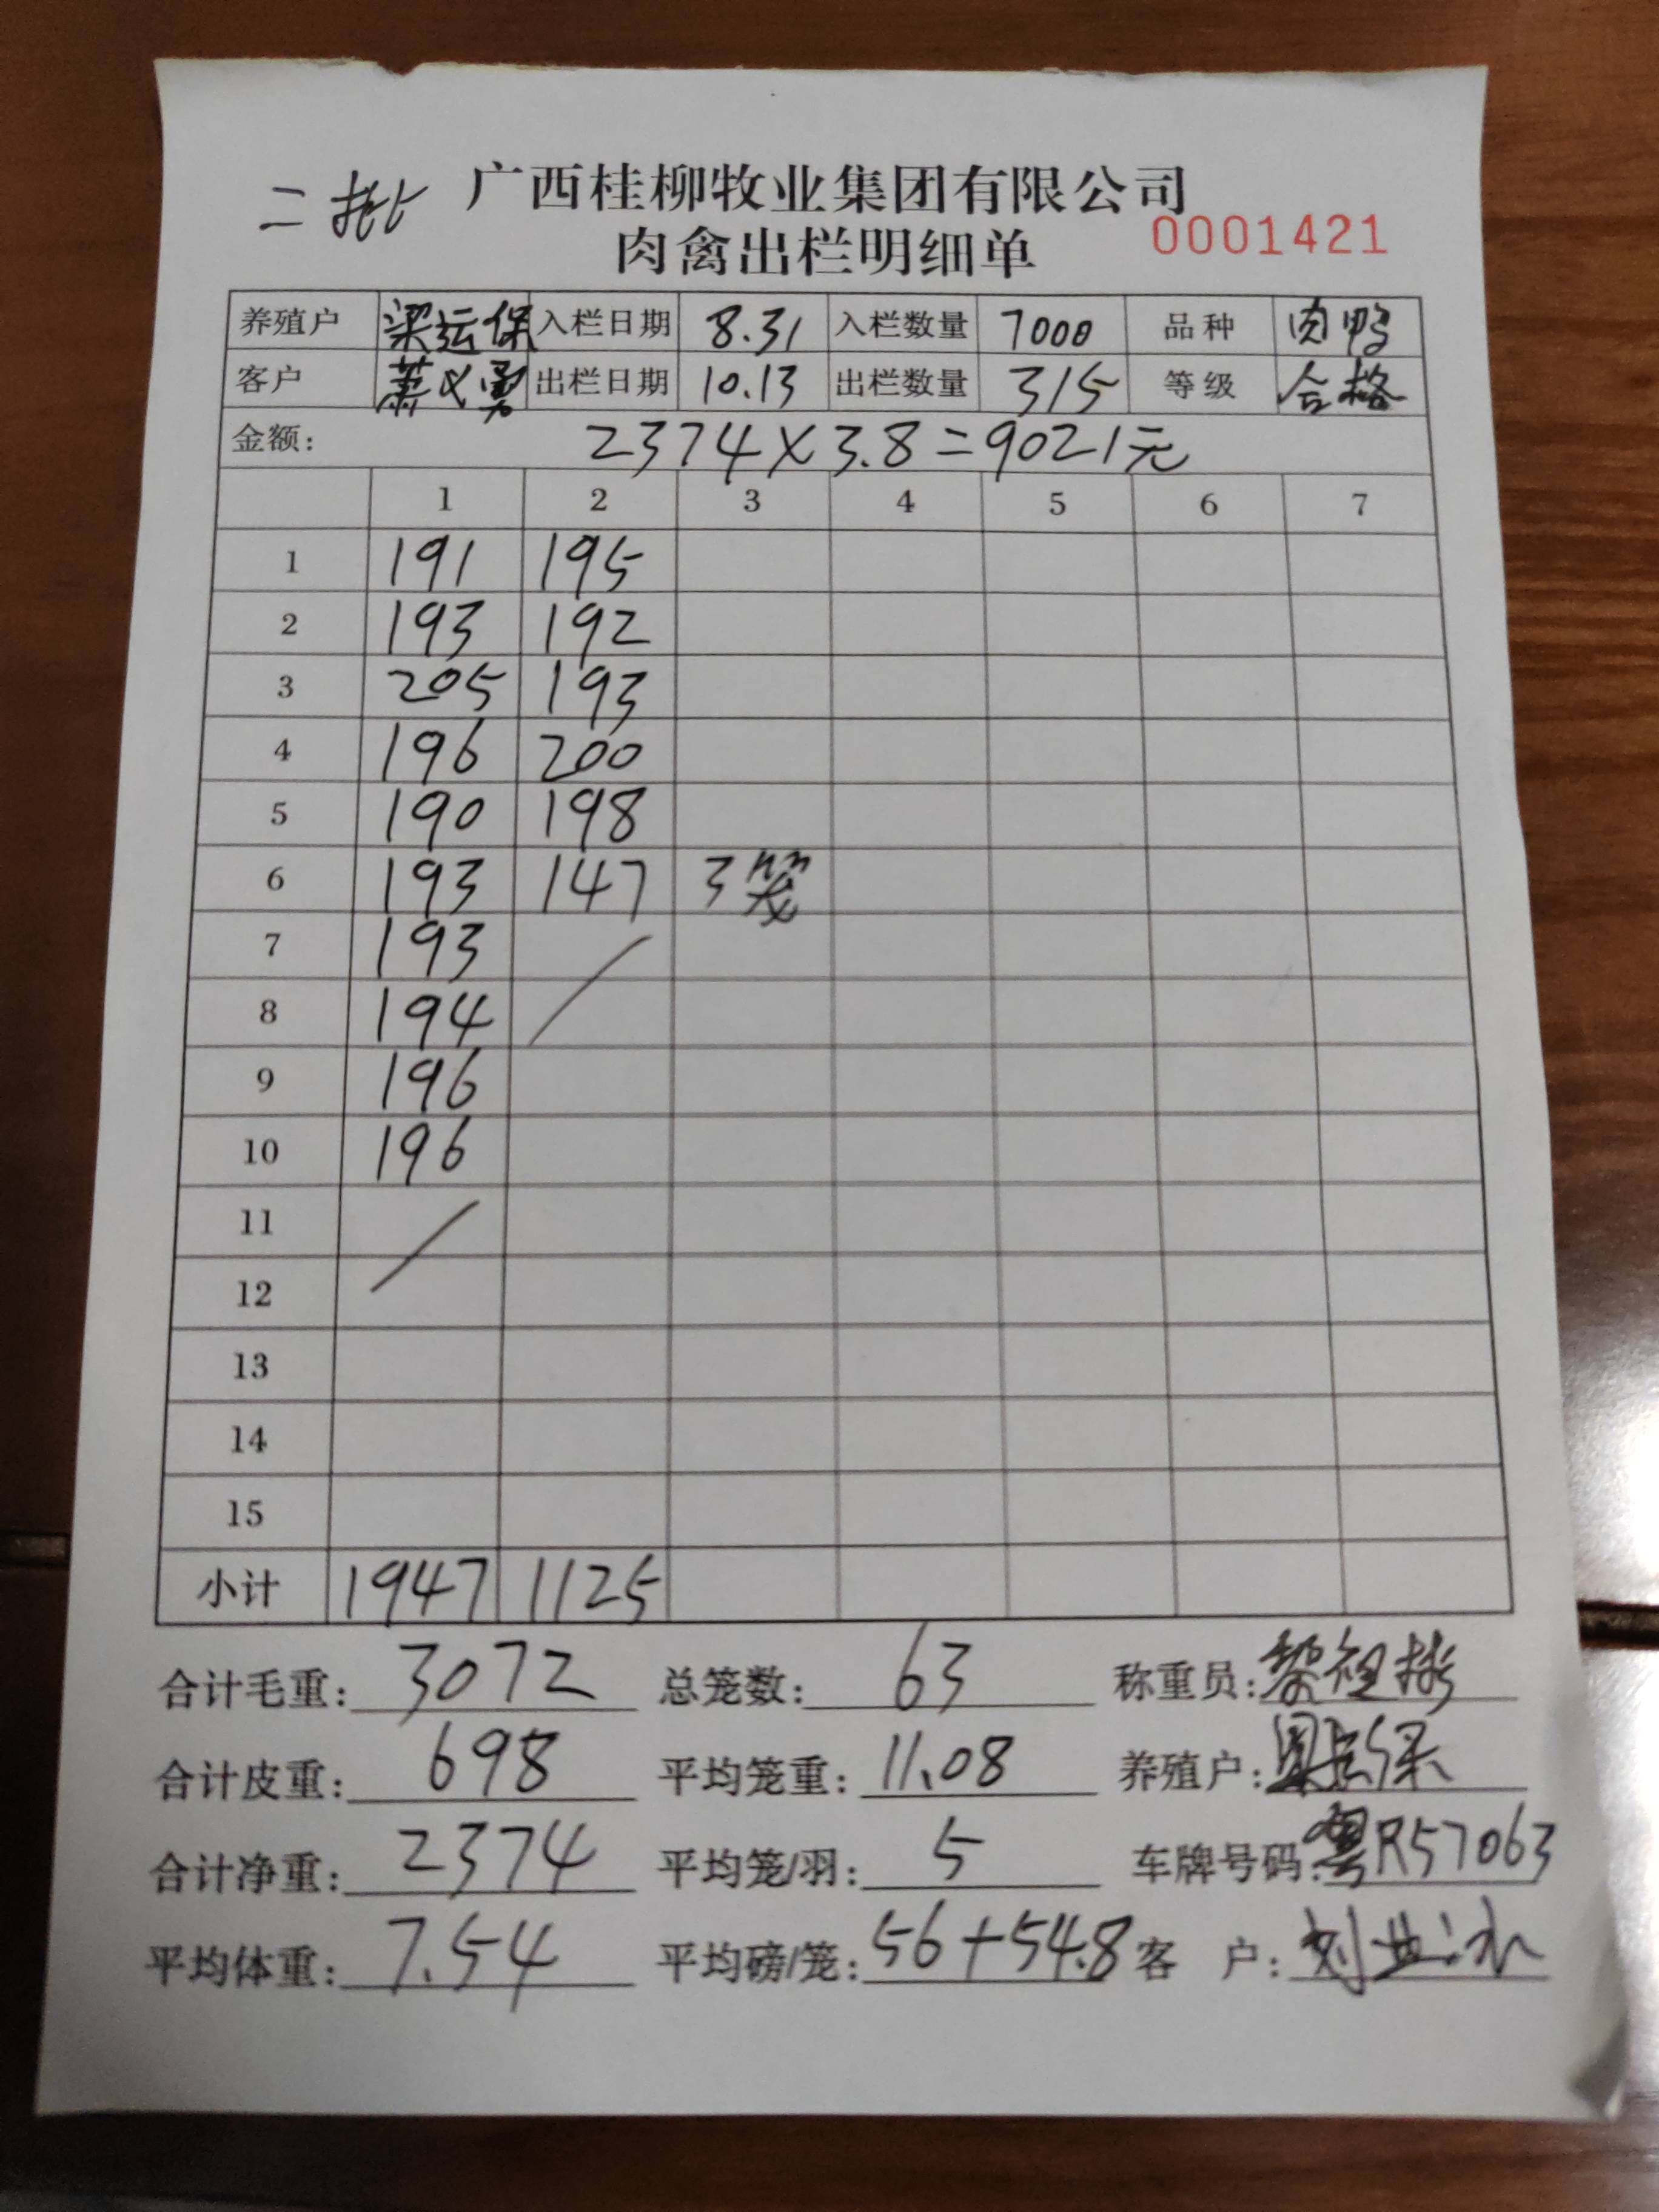 二批
广西桂柳牧业集团有限公司
肉禽出栏明细单
0001421
养殖户 梁运保 入栏日期 8.31 入栏数量 7000 品种 肉鸭
客户 萧义勇 出栏日期 10.13 出栏数量 315 等级 合格
金额: 2374×3.8=9021元
1 2 3 4 5 6 7
1 191 195
2 193 192
3 205 193
4 196 200
5 190 198
6 193 147 3笼
7 193
8 194
9 196
10 196
11
12
13
14
15
小计 1947 1125
合计毛重: 3072 总笼数: 63 称重员:
合计皮重: 698 平均笼重: 11.08 养殖户: 梁运保
合计净重: 2374 平均笼/羽: 5 车牌号码: 粤R57063
平均体重: 7.54 平均磅/笼: 56+54.8 客 户: